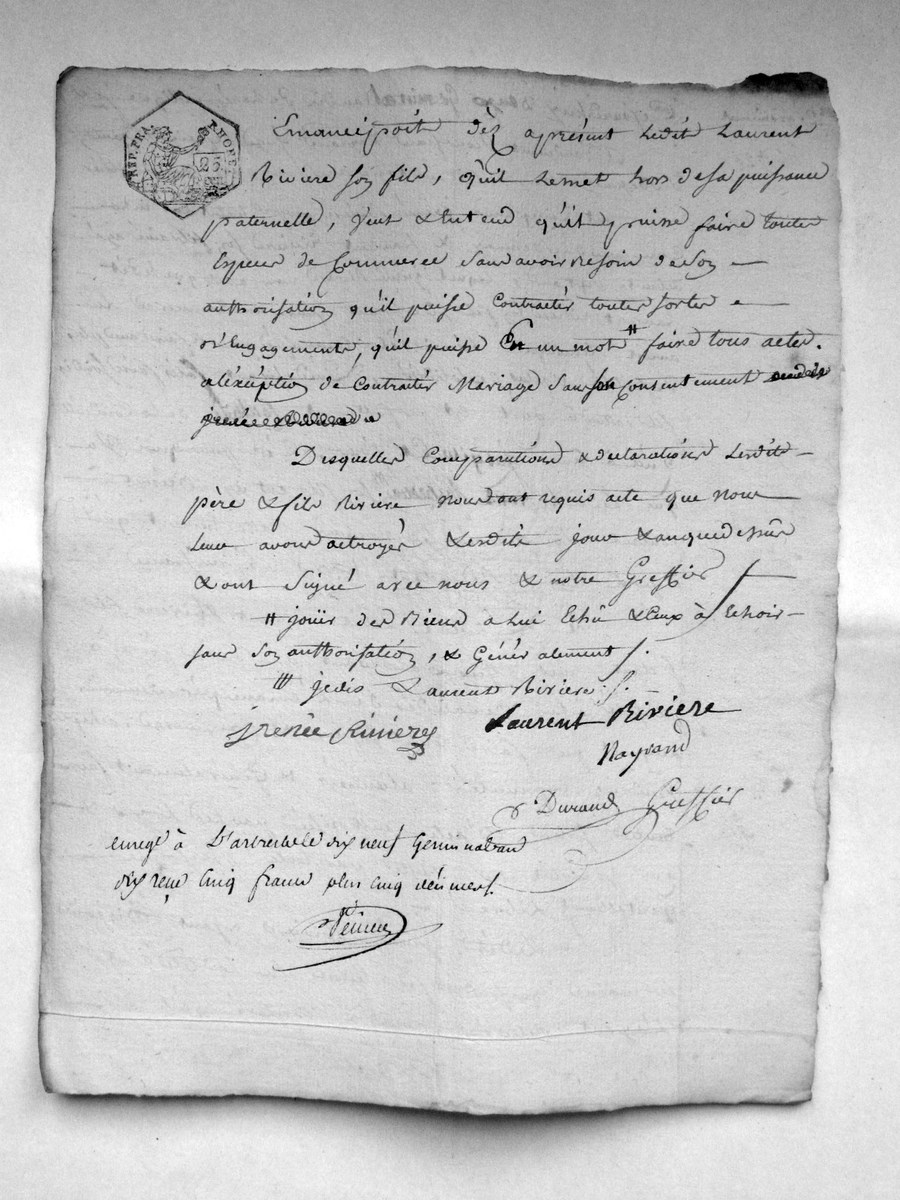 REP. FRA. RHONE
25
Emancipoit dès aprésent Ledit Laurent
Riviere son fils, qu'il Lemet hors de sa puissance
paternelle, veut & Entend qu'il puisse faire toutes
Especes de Commerce sans avoir Besoin de son
authorisation qu'il puisse Contracter toutes sortes
d'Engagements, qu'il puisse En un mot # faire tous actes
a l'éxception de Contracter Mariage sans son Consentement
Desquelles Comparutions & declarations Lesdits
père & fils Riviere nous ont requis acte que nous
Leur avons octroyés Lesdits jour & an que dessus
& ont Signé avec nous & notre Greffier
# joüir des Biens a Lui Echû & Ceux à Echoir
sans son authorisation, & Générallement
Laurent Riviere
irenée Riviere Laurent Riviere
Nayrand
Durand Greffier
enregé à L'arbresle le dix neuf Germinal an
dix reçu Cinq francs plus Cinq décimes.